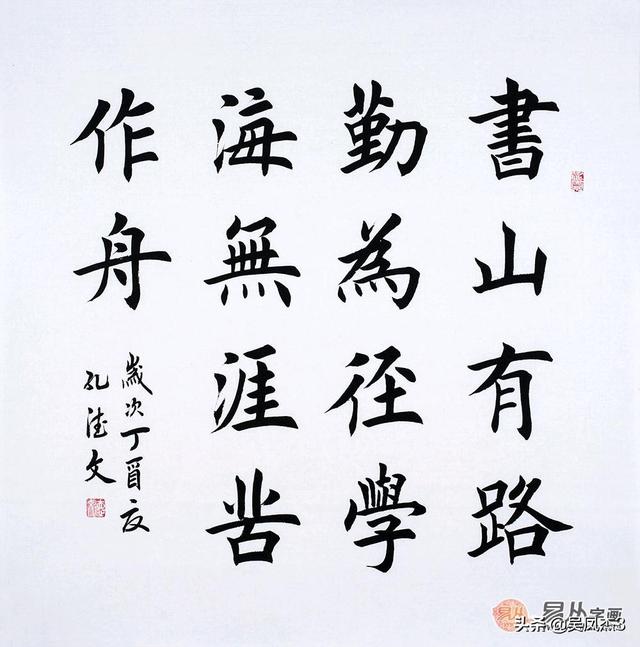 書山有路
勤為径學
海無涯苦
作舟
歲次丁酉夏
孔德文
易从字画
头条@吴凤